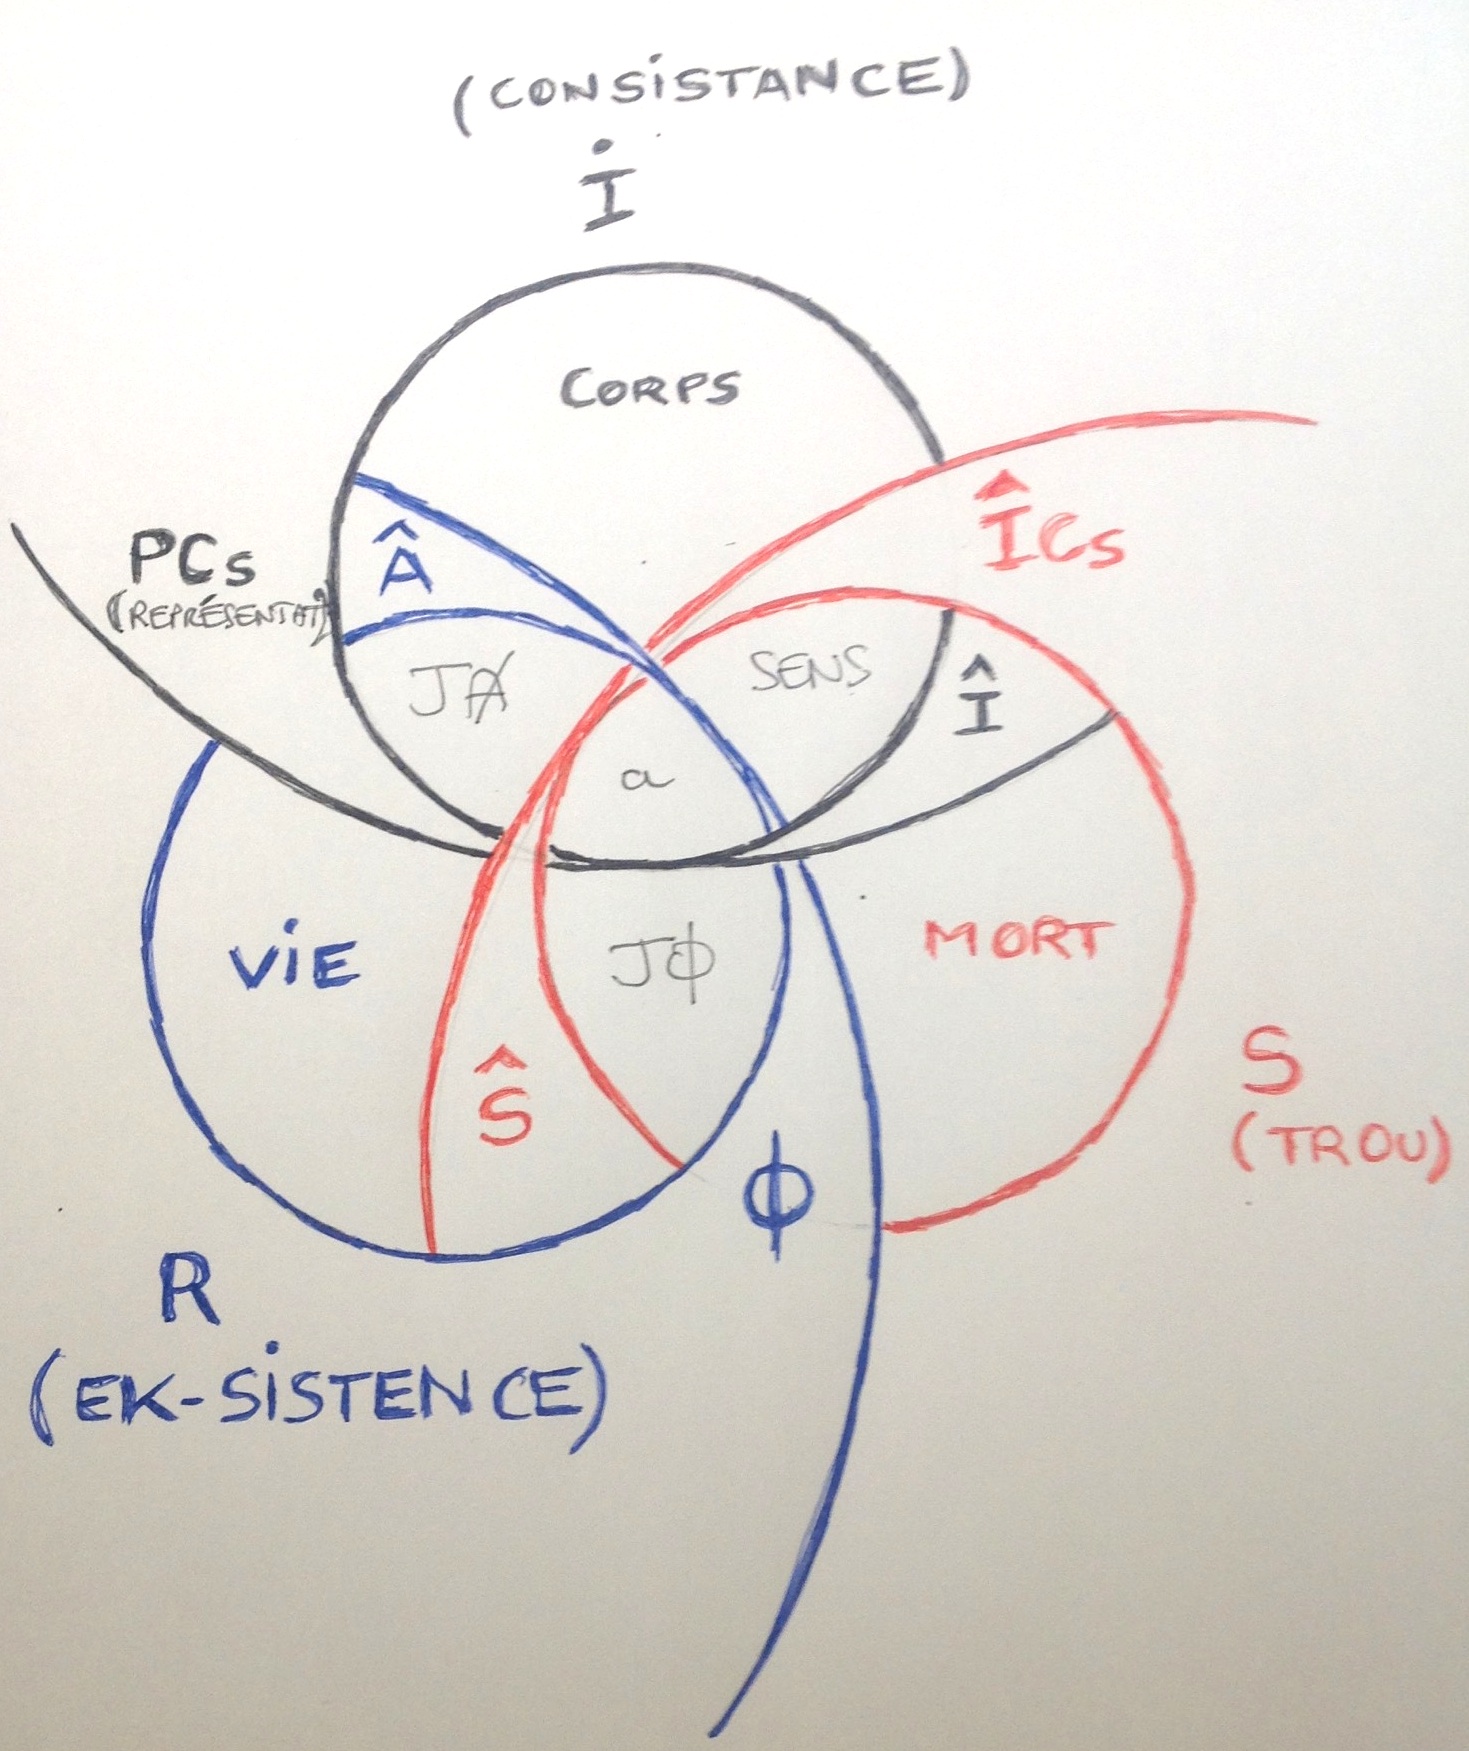 (CONSISTANCE)
I
CORPS
ÎCs
PCs
(REPRÉSENTAT)
Â
JA̸
SENS
Î
a
VIE
JΦ
MORT
Ŝ
S
(TROU)
Φ
R
(EK-SISTENCE)